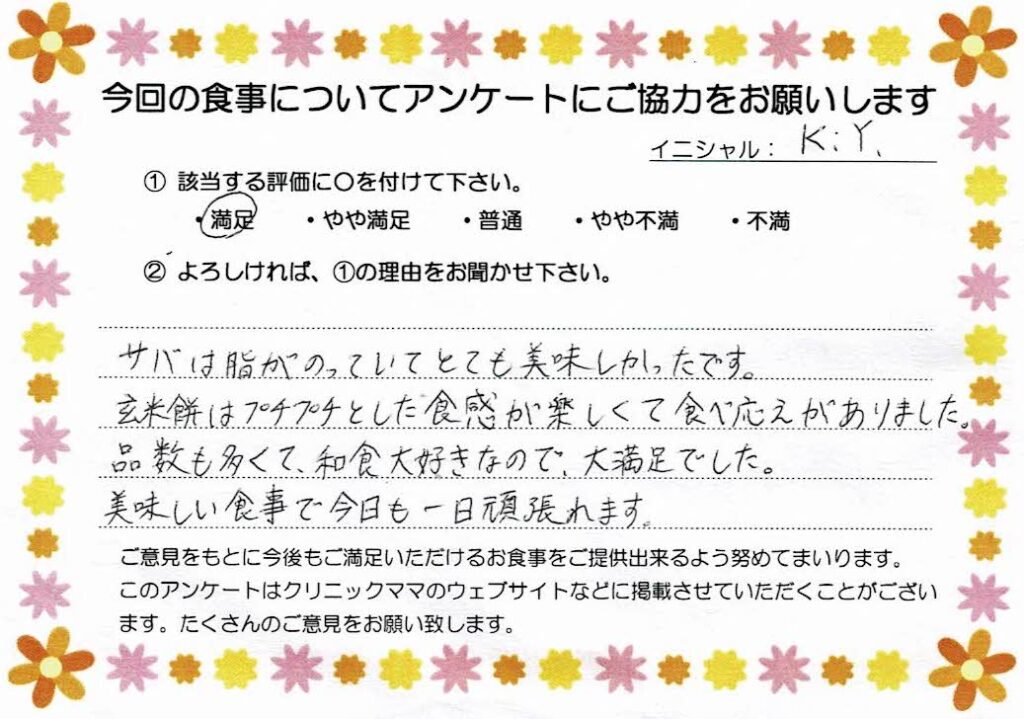 今回の食事についてアンケートにご協力をお願いします
イニシャル： K.Y.
① 該当する評価に〇を付けて下さい。
・満足 ・やや満足 ・普通 ・やや不満 ・不満
② よろしければ、①の理由をお聞かせ下さい。
サバは脂がのっていてとても美味しかったです。
玄米餅はプチプチとした食感が楽しくて食べ応えがありました。
品数も多くて、和食大好きなので、大満足でした。
美味しい食事で今日も一日頑張れます。
ご意見をもとに今後もご満足いただけるお食事をご提供出来るよう努めてまいります。
このアンケートはクリニックママのウェブサイトなどに掲載させていただくことがござい
ます。たくさんのご意見をお願い致します。